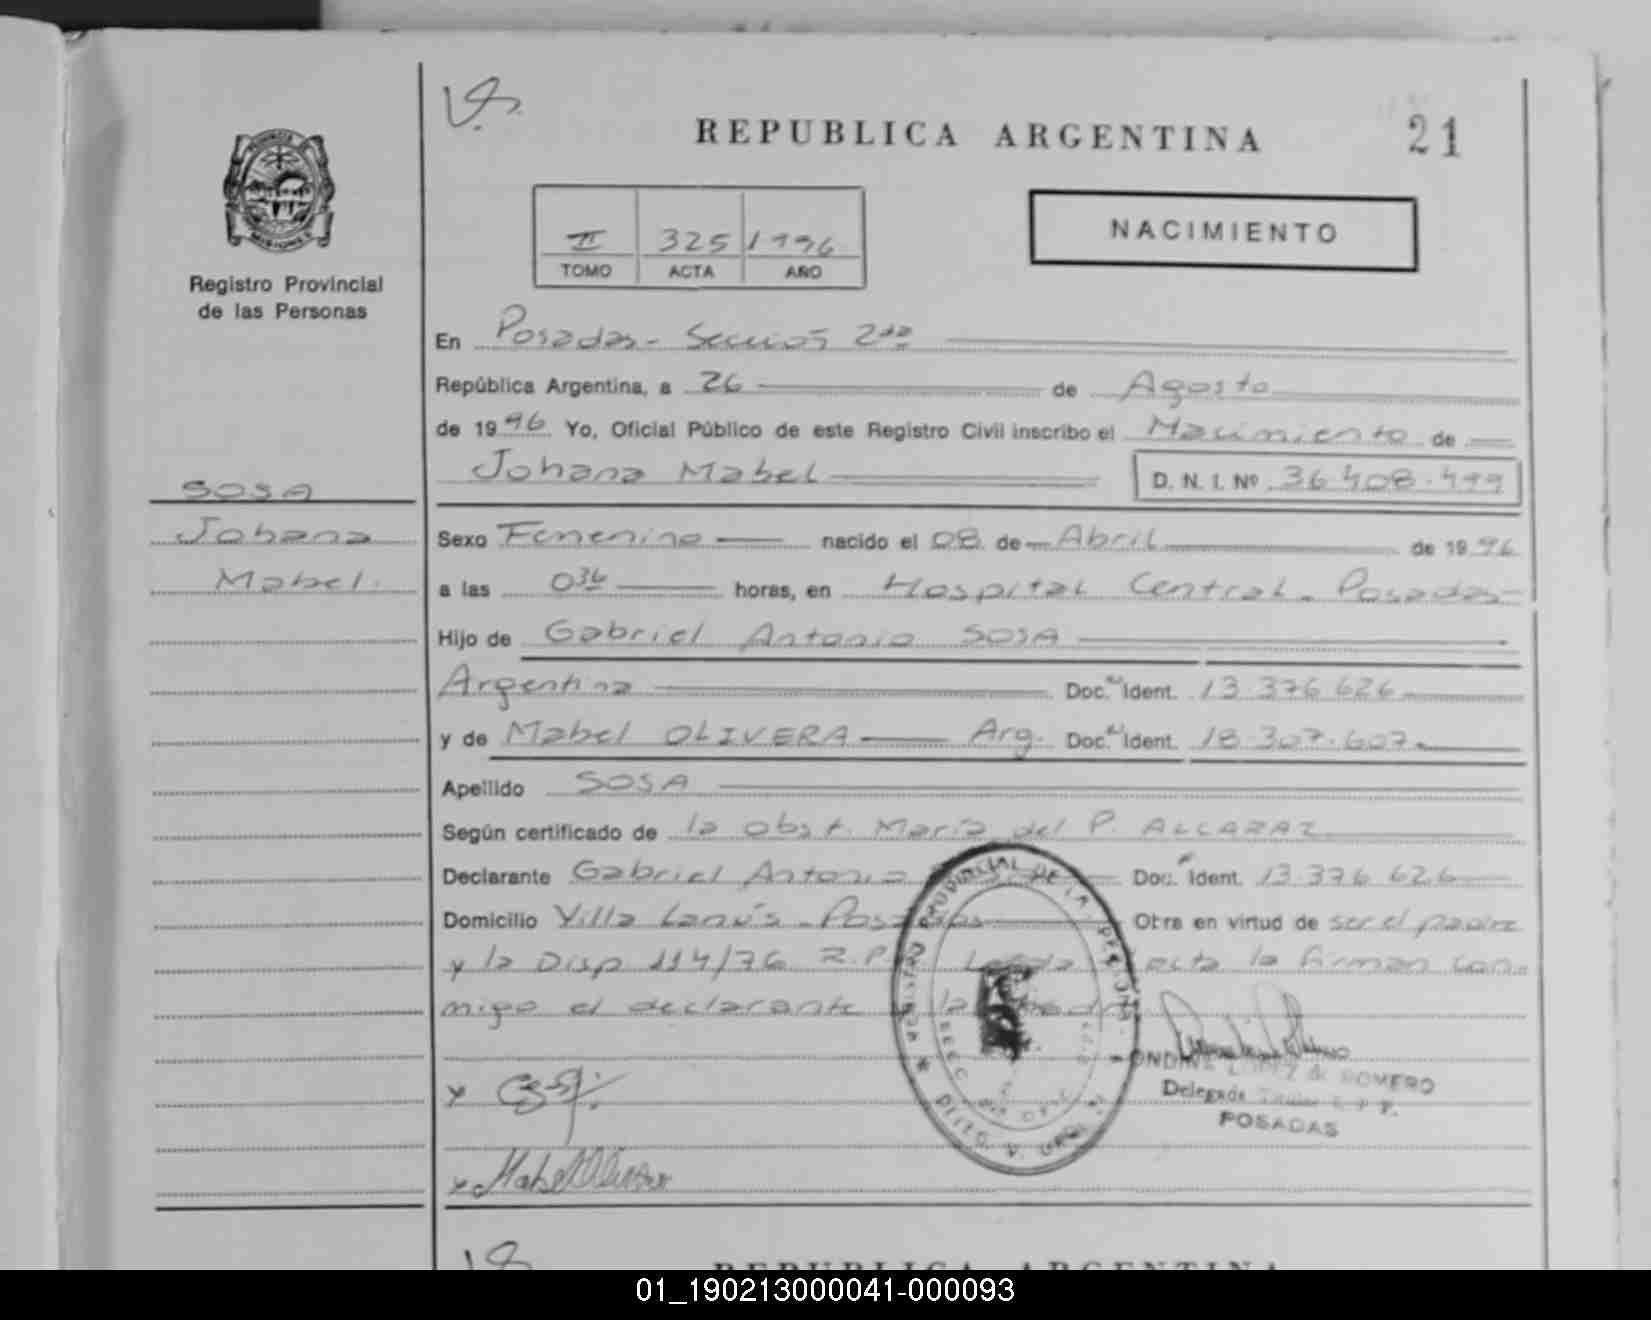 REPUBLICA ARGENTINA
21
NACIMIENTO
II 325 1996
TOMO ACTA AÑO
PROVINCIA
MISIONES
Registro Provincial
de las Personas
En Posadas - Sección 2da
República Argentina, a 26 de Agosto
de 1996 Yo, Oficial Público de este Registro Civil inscribo el Nacimiento de
Johana Mabel D. N. I. Nº 36 408.499
SOSA
Johana
Mabel.
Sexo Femenino nacido el 08 de Abril de 1996
a las 0 36 horas, en Hospital Central - Posadas
Hijo de Gabriel Antonio SOSA
Argentina Doc. Ident. 13.376.626
y de Mabel OLIVERA Arg. Doc. Ident. 18.307.607
Apellido SOSA
Según certificado de la Obst. María del P. ALCARAZ
Declarante Gabriel Antonio Doc. Ident. 13.376.626
Domicilio Villa Lanús - Posadas Obra en virtud de ser el padre
y la Disp 114/76 R.P. Leída acta la firman con-
migo el declarante la madre
REGISTRO PROVINCIAL DE LA PERSONAS
LOPEZ de ROMERO
Delegada Titular R. P. P.
POSADAS
x
x Mabel Olivera
REPUBLICA ARGENTINA
01_190213000041-000093